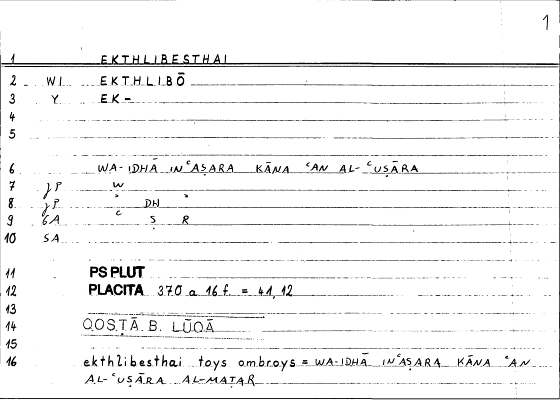 1
1 EKTHLIBESTHAI
2 WI EKTHLIBŌ
3 Y EK-
4
5
6 WA-IDHĀ INʿAṢARA KĀNA ʿAN AL-ʿUṢĀRA
7 JP W
8 JP ʾ DH ʾ
9 6A ʿ Ṣ R
10 SA
11 PS PLUT
12 PLACITA 370 a 16 f. = 41,12
13
14 QOSṬĀ B. LŪQĀ
15
16 ekthlibesthai toys ombroys = WA-IDHĀ INʿAṢARA KĀNA ʿAN
AL-ʿUṢĀRA AL-MAṬAR